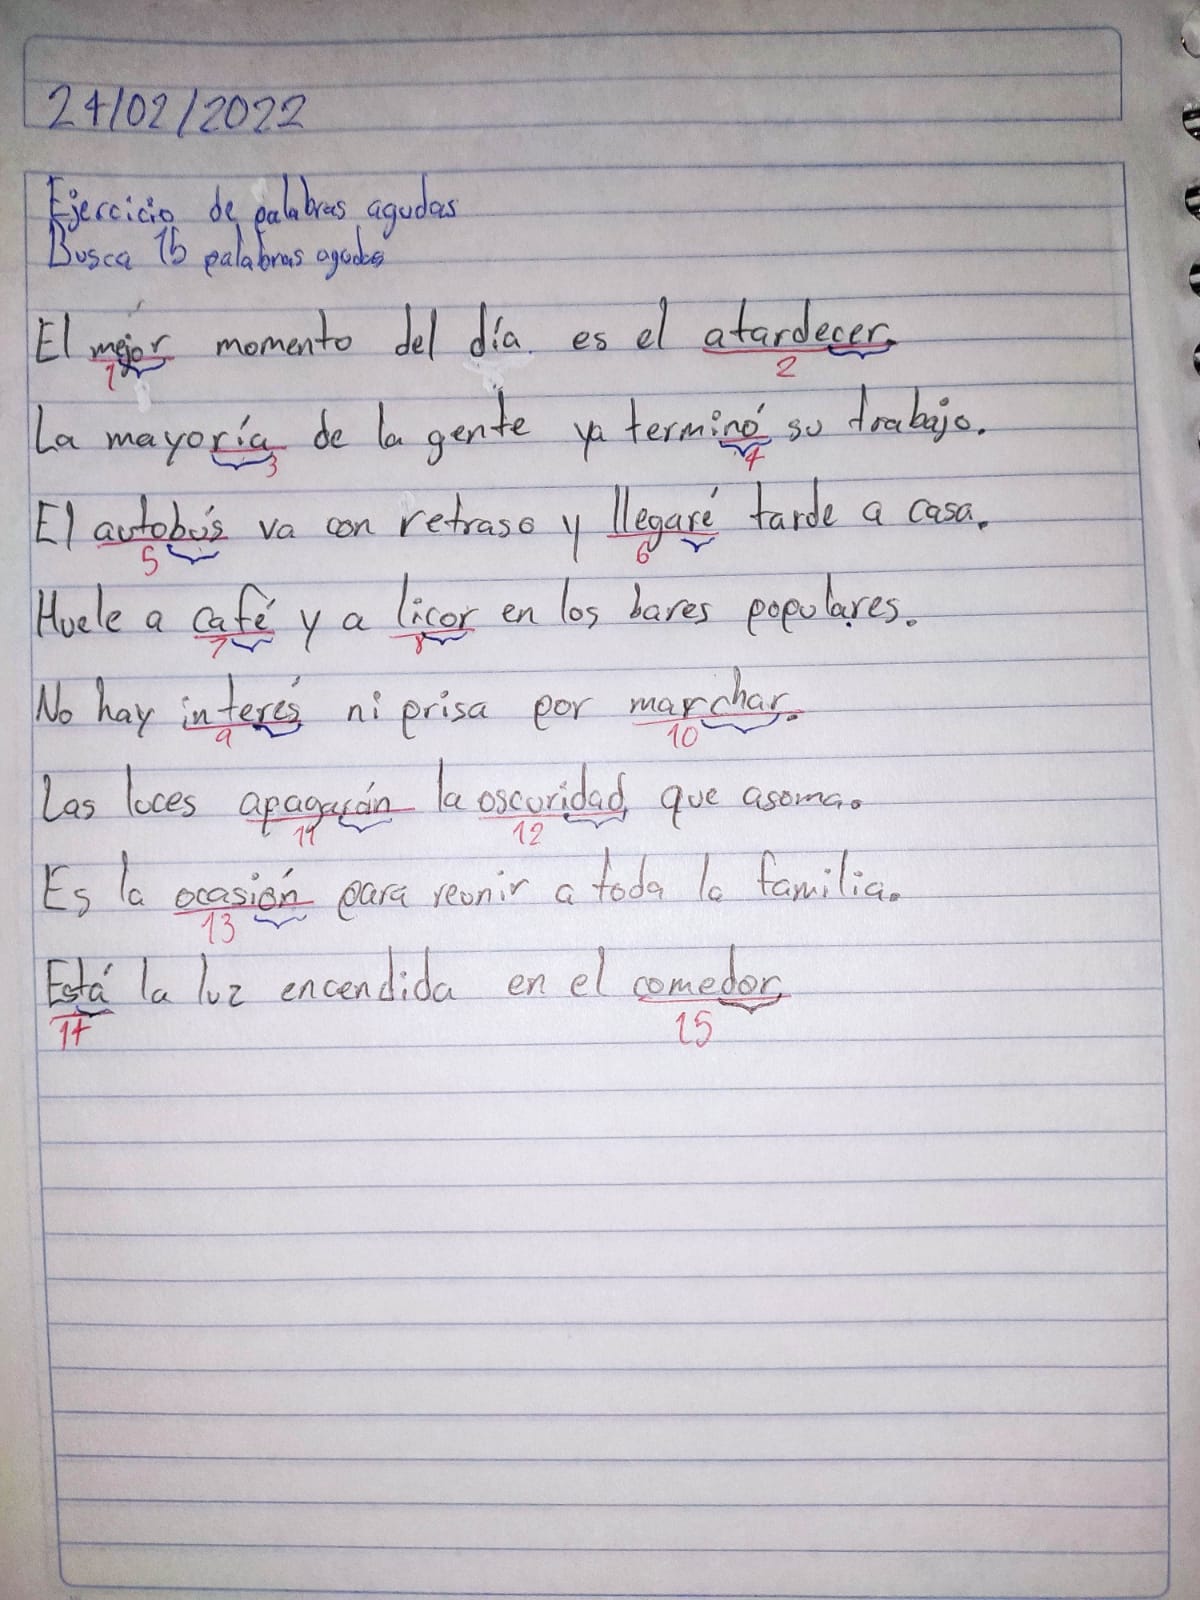 24/02/2022
Ejercicio de palabras agudas
Busca 15 palabras agudas
El mejor momento del día es el atardecer.
1 2
La mayoría de la gente ya terminó su trabajo.
3 4
El autobús va con retraso y llegaré tarde a casa.
5 6
Huele a café y a licor en los bares populares.
7 8
No hay interés ni prisa por marchar.
9 10
Las luces apagarán la oscuridad que asoma.
11 12
Es la ocasión para reunir a toda la familia.
13
Está la luz encendida en el comedor
14 15